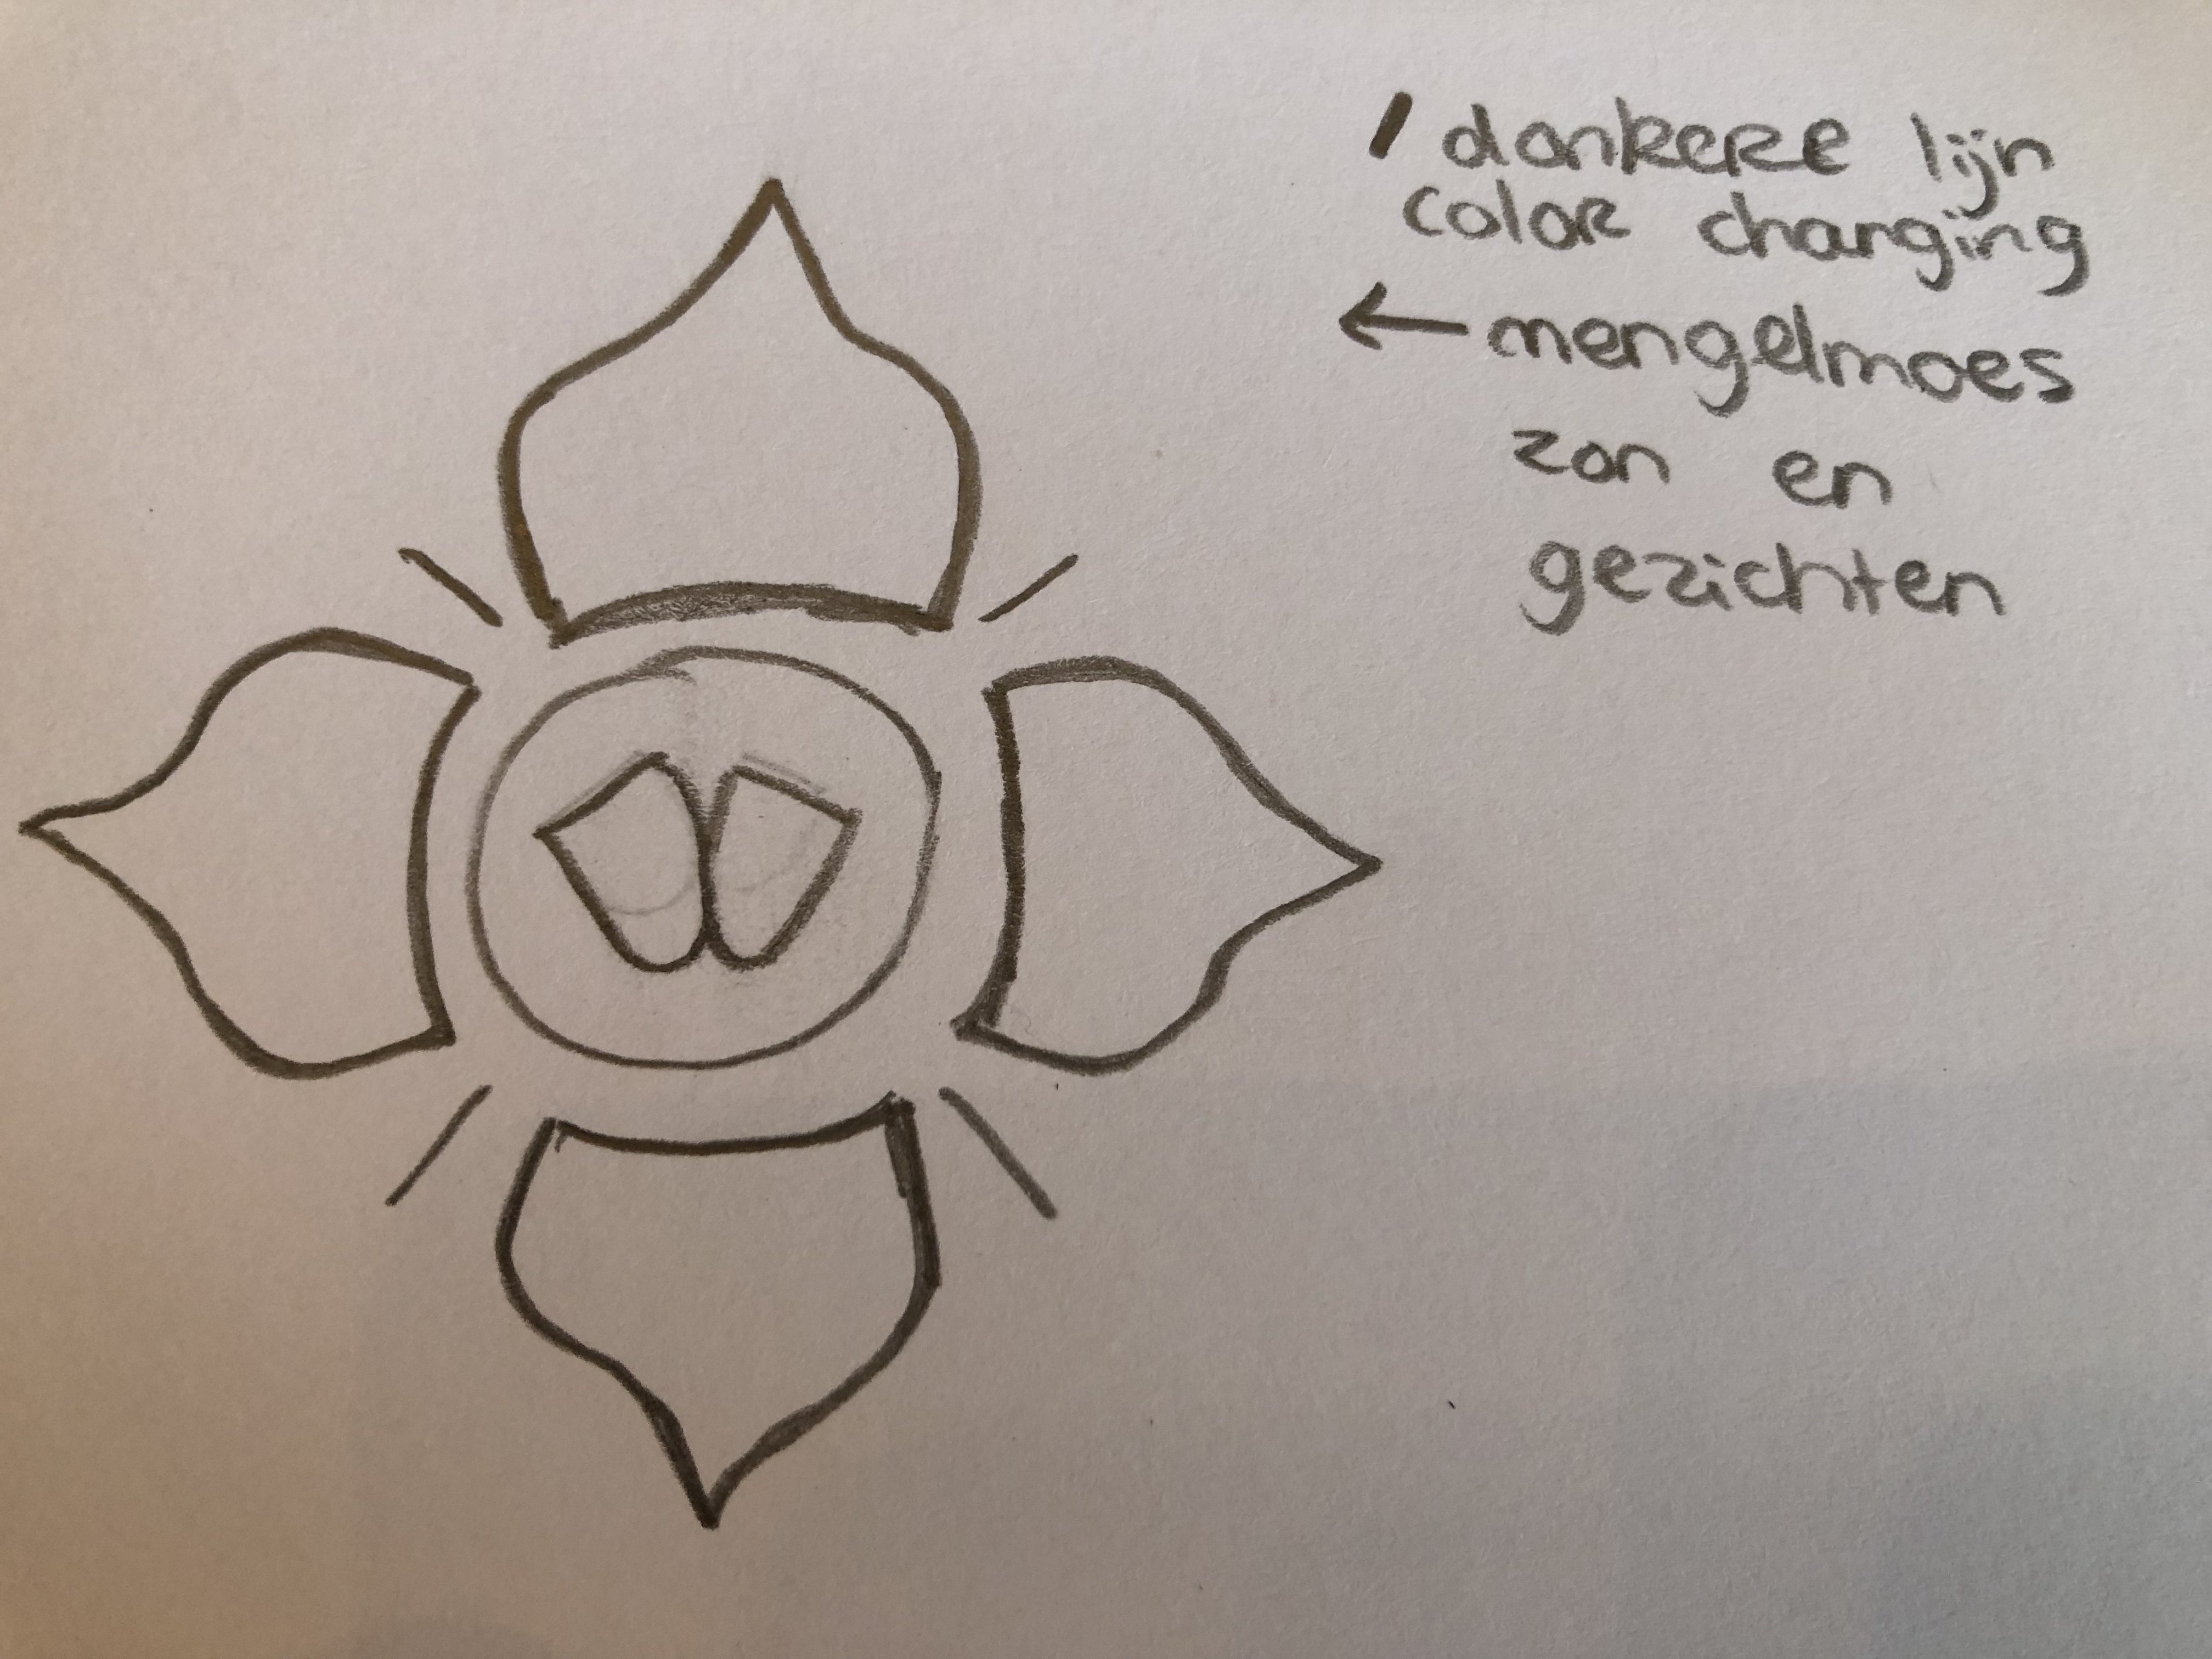 donkere lijn
color changing
mengelmoes
zon en
gezichten